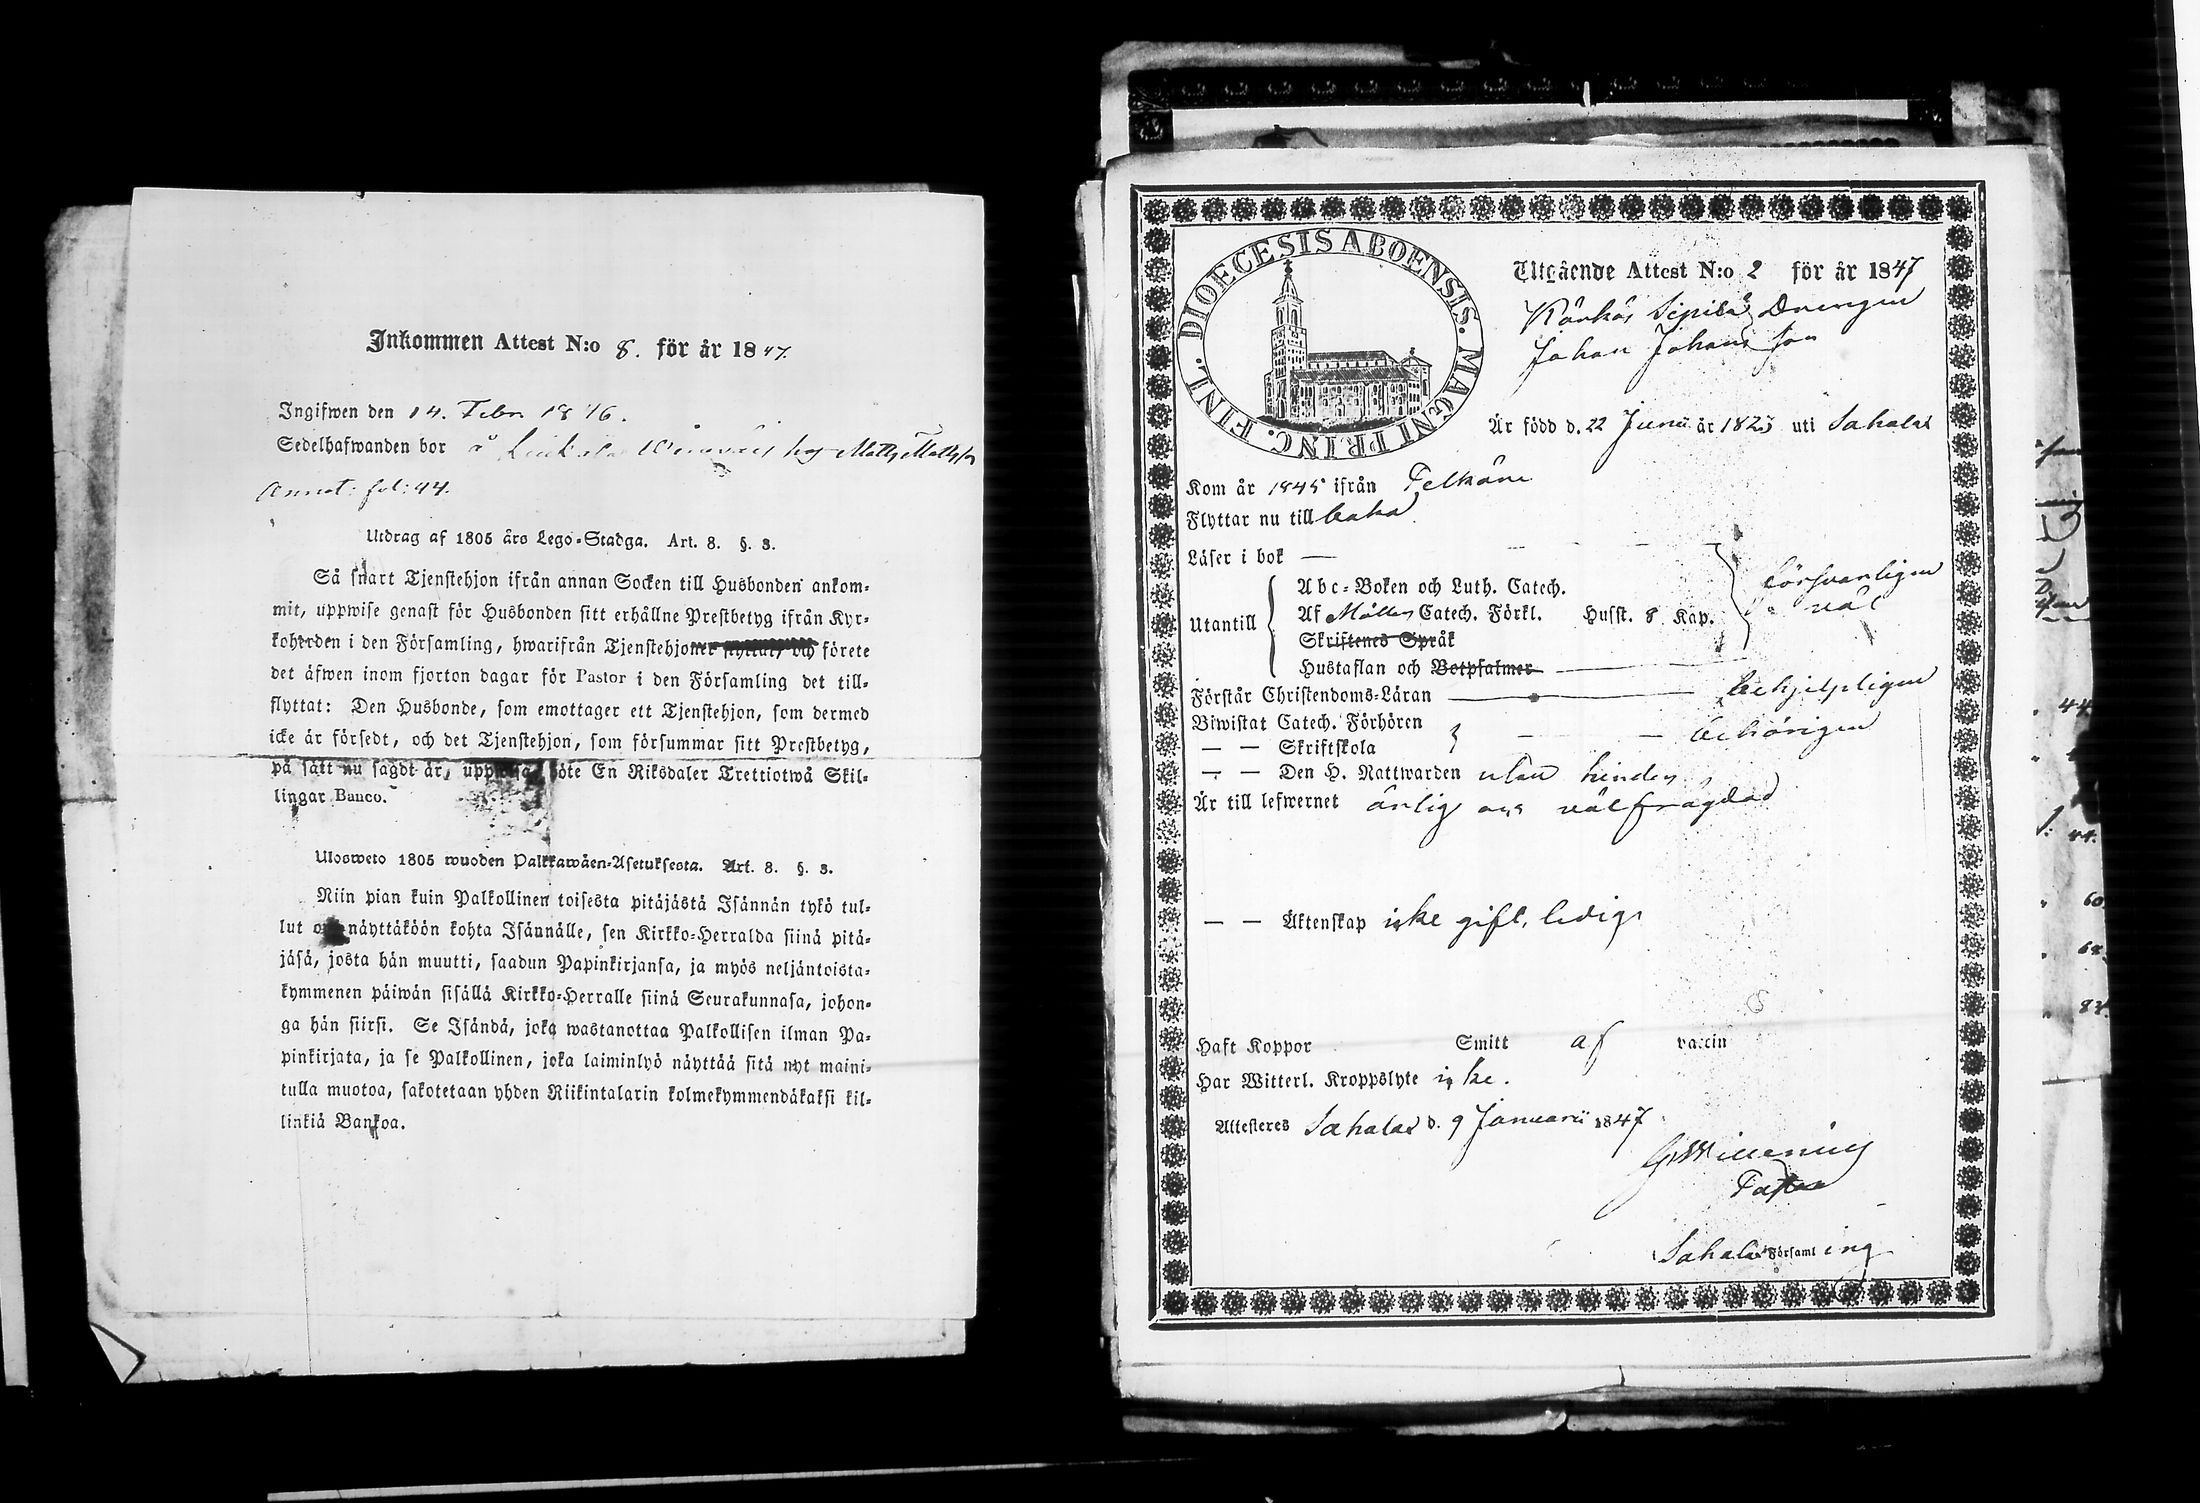 Inkommen Attest N:o 8. för år 1847.
Ingifwen den 14. Febr 1846.
Sedelhafwanden bor å
Annot: fol: 44.
Utdrag af 1805 års Lego-Stadga. Art. 8. §. 3.
Så snart Tjenstehjon ifrån annan Socken till Husbonden ankom-
mit, uppwise genast för Husbonden sitt erhållne Prestbetyg ifrån Kyr-
koherden i den Församling, hwarifrån Tjenstehjonet flyttat, och förete
det äfwen inom fjorton dagar för Pastor i den Församling det till-
flyttat: Den Husbonde, som emottager ett Tjenstehjon, som dermed
icke är försedt, och det Tjenstehjon, som försummar sitt Prestbetyg,
på sätt nu sagdt är, uppwisa, böte En Riksdaler Trettiotwå Skil-
lingar Banco.
Ulosweto 1805 wuoden Palkkawäen-Asetuksesta. Art. 8. §. 3.
Niin pian kuin Palkollinen toisesta pitäjästä Isännän tykö tul-
lut on, näyttäköön kohta Isännälle, sen Kirkko-Herralda siinä pitä-
jäsä, josta hän muutti, saadun Papinkirjansa, ja myös neljäntoista-
kymmenen päiwän sisällä Kirkko-Herralle siinä Seurakunnasa, johon-
ga hän siirsi. Se Isändä, joka wastanottaa Palkollisen ilman Pa-
pinkirjata, ja se Palkollinen, joka laiminlyö näyttää sitä nyt maini-
tulla muotoa, sakotetaan yhden Riikintalarin kolmekymmendäkaksi kil-
linkiä Bankoa.
DIOECESIS ABOENSIS. MAGNI PRINC. FINL.
Utgående Attest N:o 2 för år 1847
Sipilä Drengen
Johan Johansson
Är född d. 22 Junii år 1823 uti Sahalax
Kom år 1845 ifrån Pelkäne
Flyttar nu tillbaka
Läser i bok —
Utantill
Abc-Boken och Luth. Catech.
Af Möllers Catech. Förkl. Husst. 8 Kap.
försvarligen
väl
Skriftenes Språk
Hustaflan och Botpsalmer
Förstår Christendoms-Läran behjelpligen
Biwistat Catech. Förhören
— — Skriftskola behörigen
— — Den H. Nattwarden utan hinder
Är till lefwernet ärlig och välfrägdad
— — Äktenskap icke gift, ledig
Haft Koppor Smitt af vaccin
Har Witterl. Kroppslyte icke.
Attesteres Sahalax d. 9 Januarii 1847
Pastor
Sahalax Församling
44
60
68.
83.